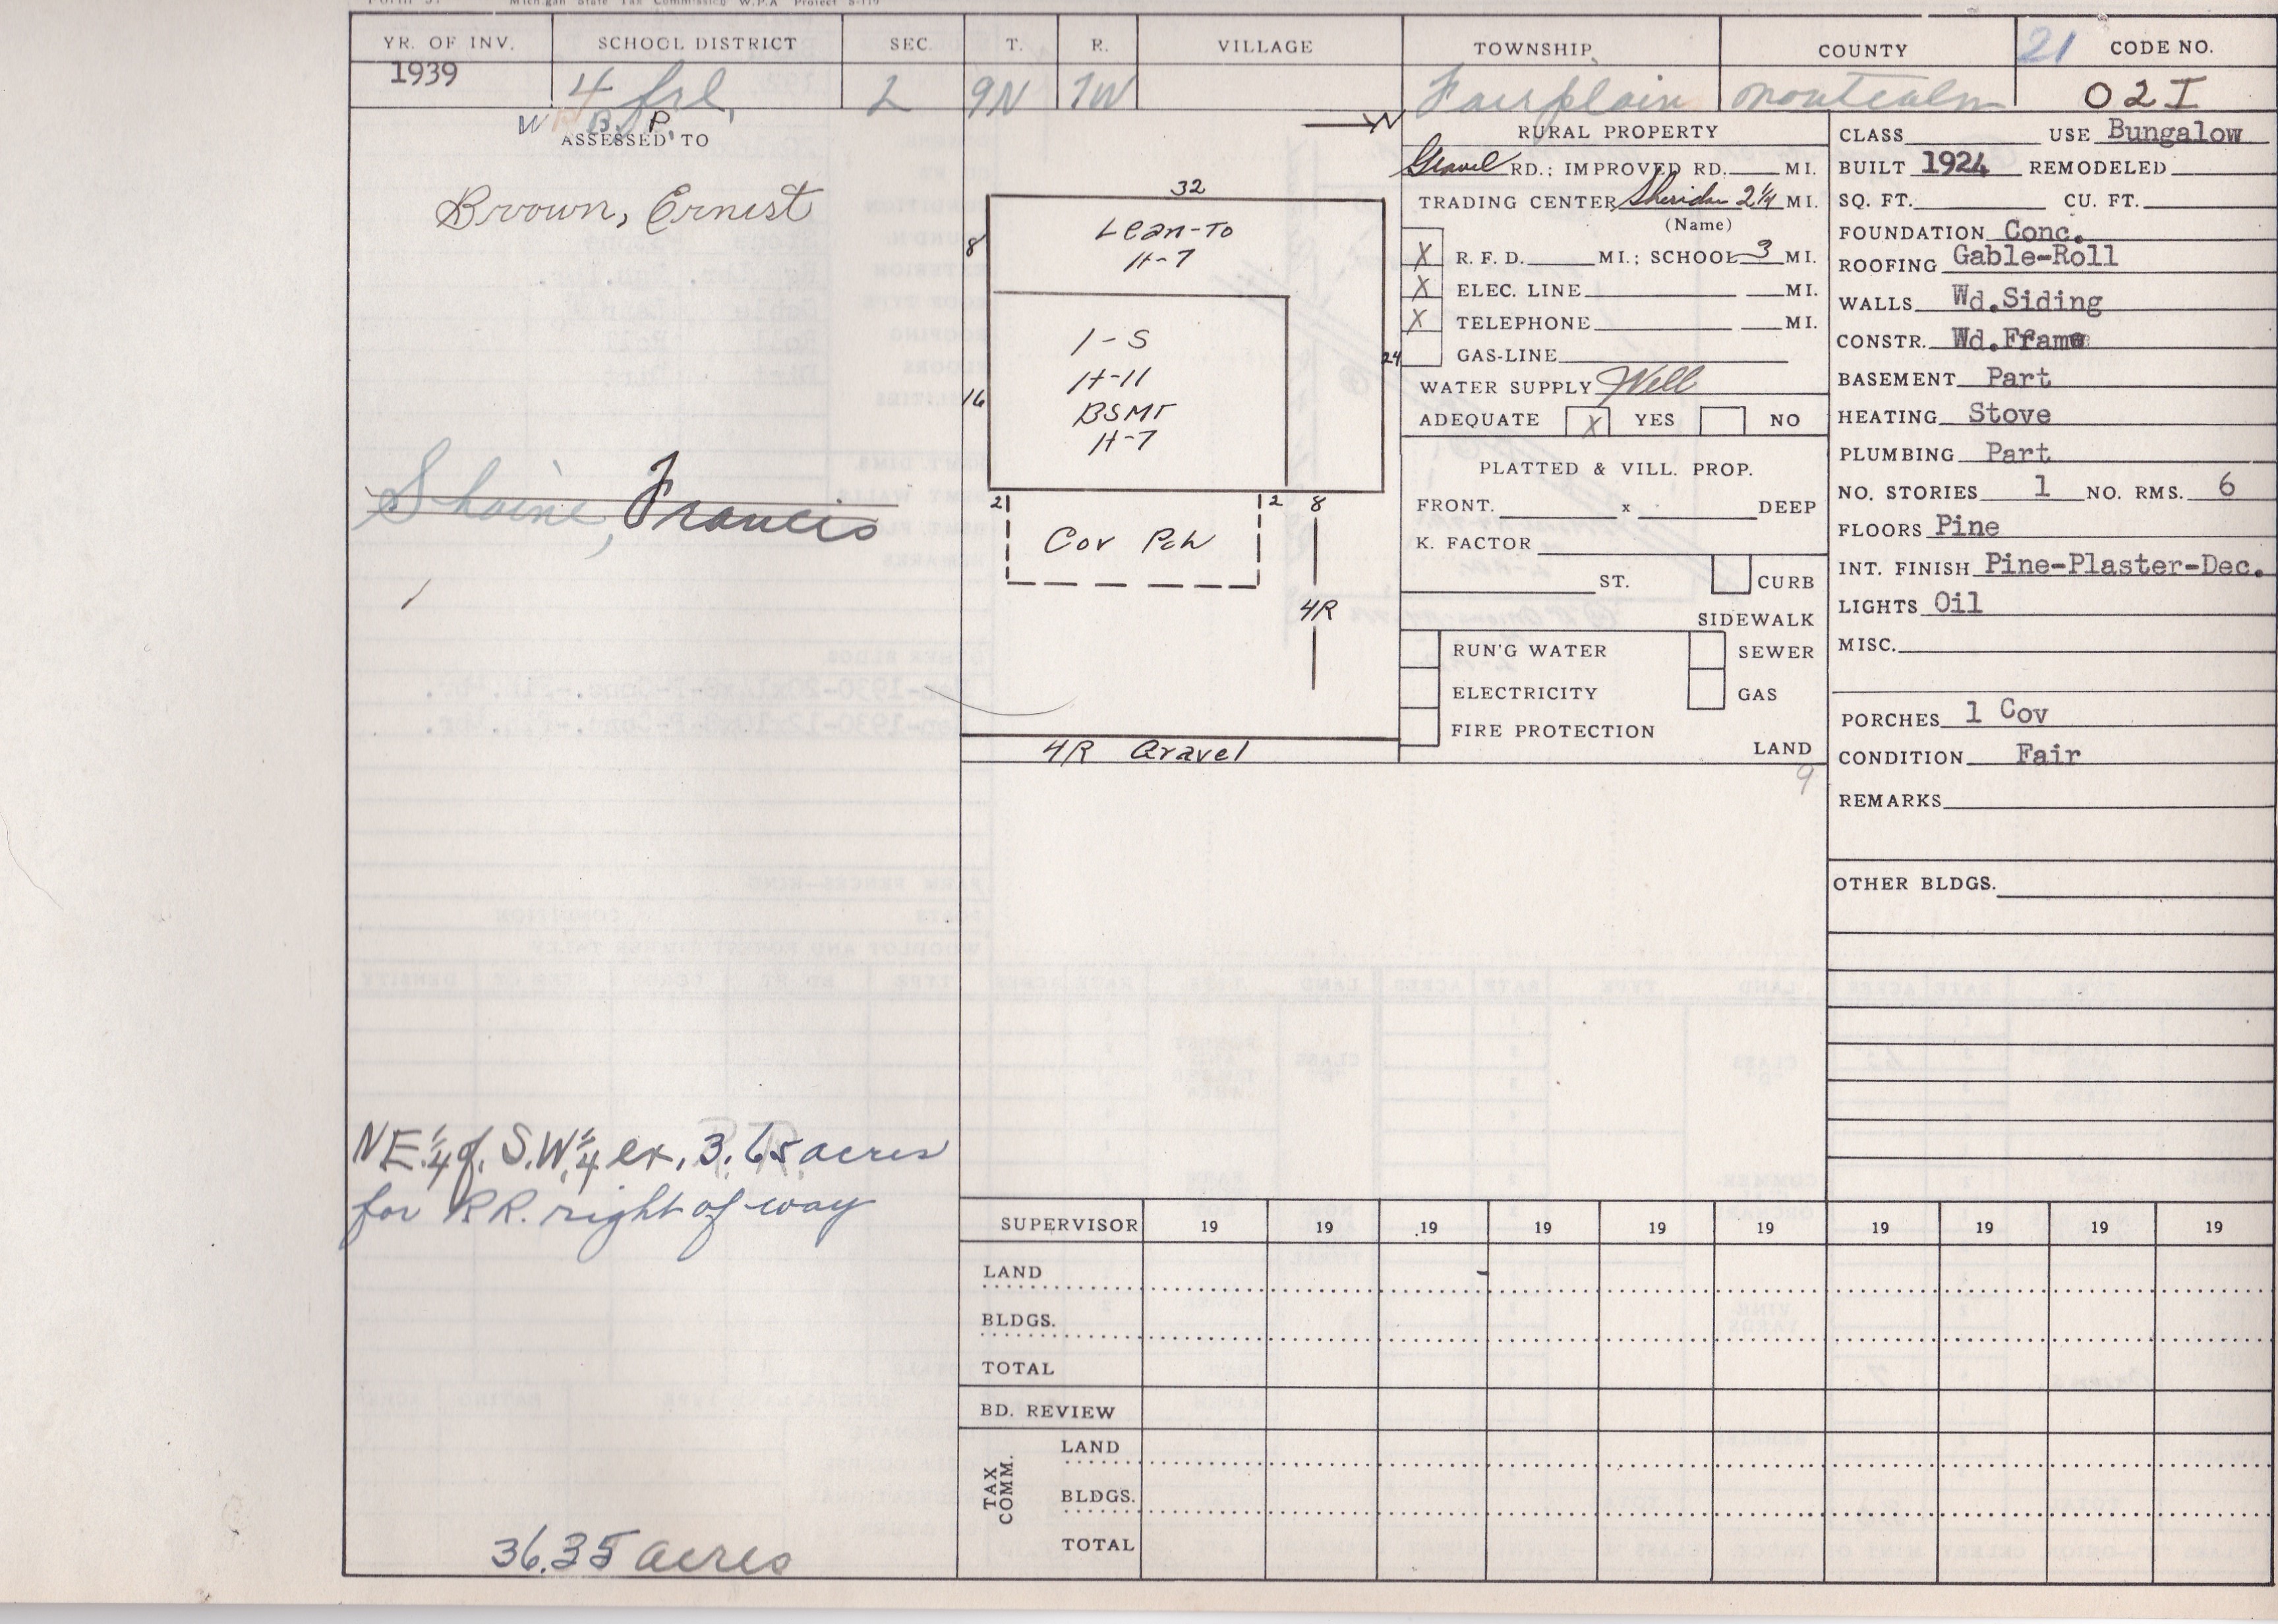 Michigan State Tax Commission W.P.A Project
YR. OF INV. SCHOOL DISTRICT SEC. T. R. VILLAGE TOWNSHIP COUNTY 21 CODE NO.
1939 4 frl. 2 9N 7W Fairplain Montcalm 02I
W B. P.
ASSESSED TO
Brown, Ernest
Shaine, Francis
NE.¼ of. S.W.¼ ex. 3.65 acres
for RR. right of way
36.35 acres
N
32
8
Lean-To
H-7
1-S
H-11
BSMT
H-7
16
24
2 2 8
Cov Pch
4R
4R Gravel
RURAL PROPERTY
Gravel RD.; IMPROVED RD. MI.
TRADING CENTER Sheridan 2¼ MI.
(Name)
X R. F. D. MI.; SCHOOL 3 MI.
X ELEC. LINE MI.
X TELEPHONE MI.
GAS-LINE
WATER SUPPLY Well
ADEQUATE X YES NO
PLATTED & VILL. PROP.
FRONT. x DEEP
K. FACTOR
ST. CURB
SIDEWALK
RUN'G WATER SEWER
ELECTRICITY GAS
FIRE PROTECTION
LAND
9
CLASS USE Bungalow
BUILT 1924 REMODELED
SQ. FT. CU. FT.
FOUNDATION Conc.
ROOFING Gable-Roll
WALLS Wd.Siding
CONSTR. Wd.Frame
BASEMENT Part
HEATING Stove
PLUMBING Part
NO. STORIES 1 NO. RMS. 6
FLOORS Pine
INT. FINISH Pine-Plaster-Dec.
LIGHTS Oil
MISC.
PORCHES 1 Cov
CONDITION Fair
REMARKS
OTHER BLDGS.
SUPERVISOR 19 19 19 19 19 19 19 19 19 19
LAND
BLDGS.
TOTAL
BD. REVIEW
TAX COMM.
LAND
BLDGS.
TOTAL